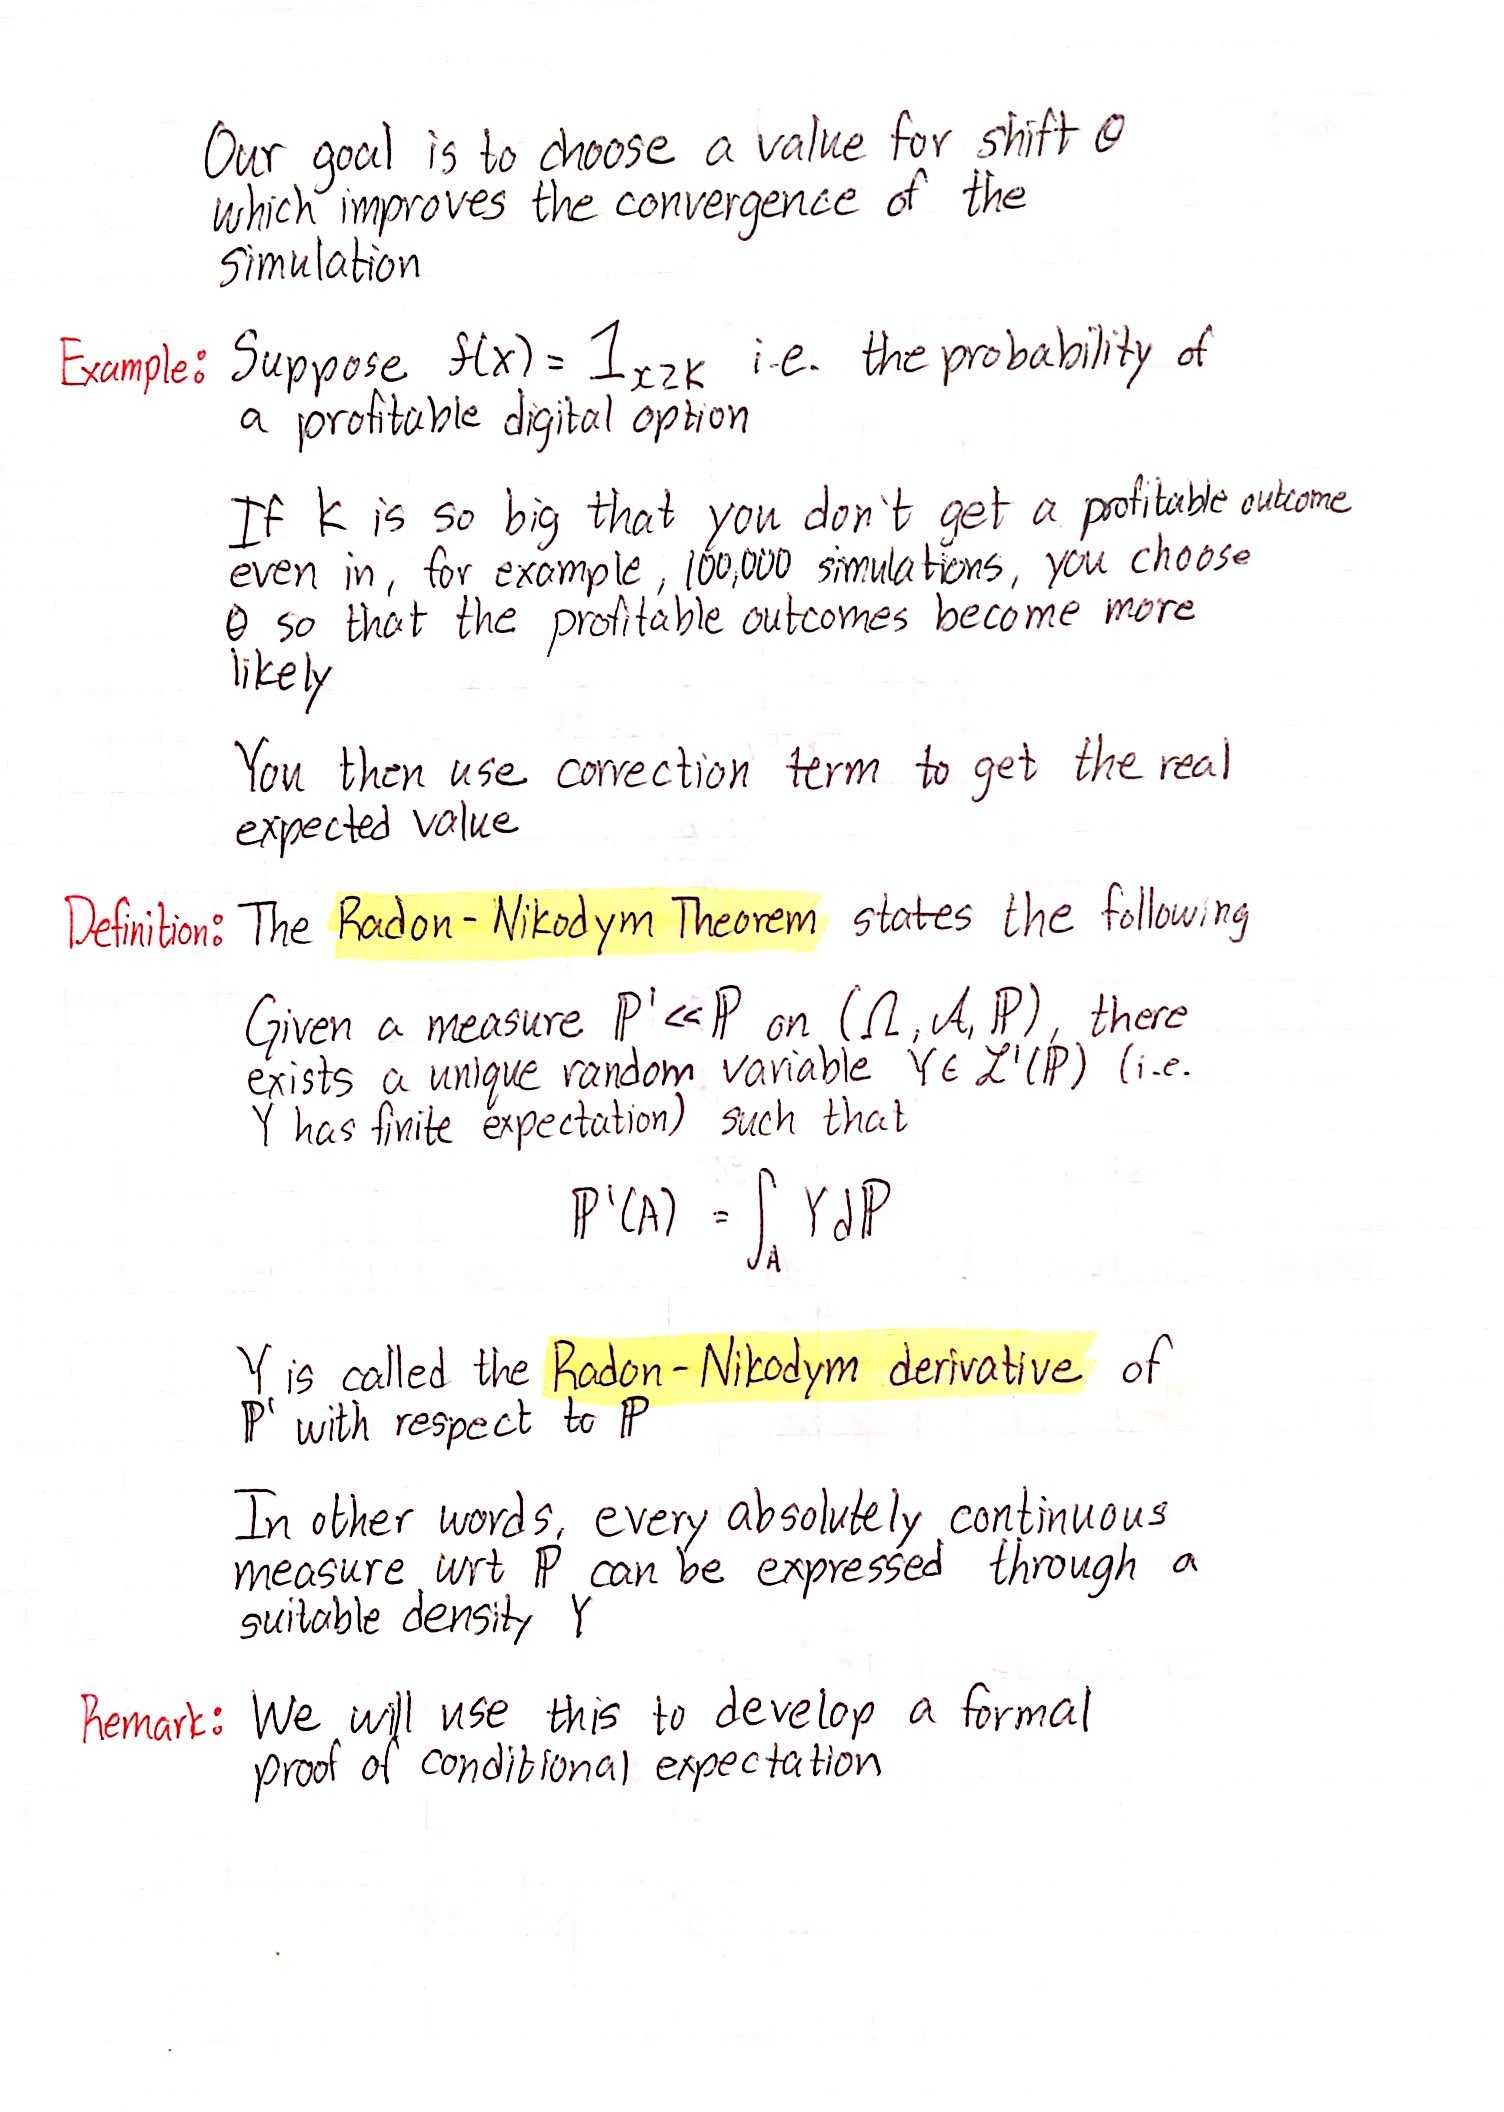 Our goal is to choose a value for shift θ
which improves the convergence of the
simulation
Example: Suppose f(x) = 1_{x≥K} i.e. the probability of
a profitable digital option
If K is so big that you don't get a profitable outcome
even in, for example, 100,000 simulations, you choose
θ so that the profitable outcomes become more
likely
You then use correction term to get the real
expected value
Definition: The Radon-Nikodym Theorem states the following
Given a measure ℙ' << ℙ on (Ω, 𝒜, ℙ), there
exists a unique random variable Y ∈ ℒ¹(ℙ) (i.e.
Y has finite expectation) such that
ℙ'(A) = ∫_A Y dℙ
Y is called the Radon-Nikodym derivative of
ℙ' with respect to ℙ
In other words, every absolutely continuous
measure wrt ℙ can be expressed through a
suitable density Y
Remark: We will use this to develop a formal
proof of conditional expectation